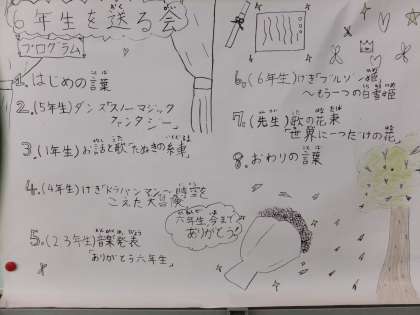 6年生を送る会
プログラム
1. はじめの言葉
2. (5年生)ダンス"スノーマジック
ファンタジー"
3. (1年生)お話と歌"たぬきの糸車"
4. (4年生)げき"ドラパンマン〜時空を
こえた大冒険
5. (2 3年生)音楽発表
「ありがとう六年生」
6. (6年生)げき"プルゾン姫
〜もう一つの白雪姫
7. (先生)歌の花束
「世界に一つだけの花」
8. おわりの言葉
六年生今まで
ありがとう!